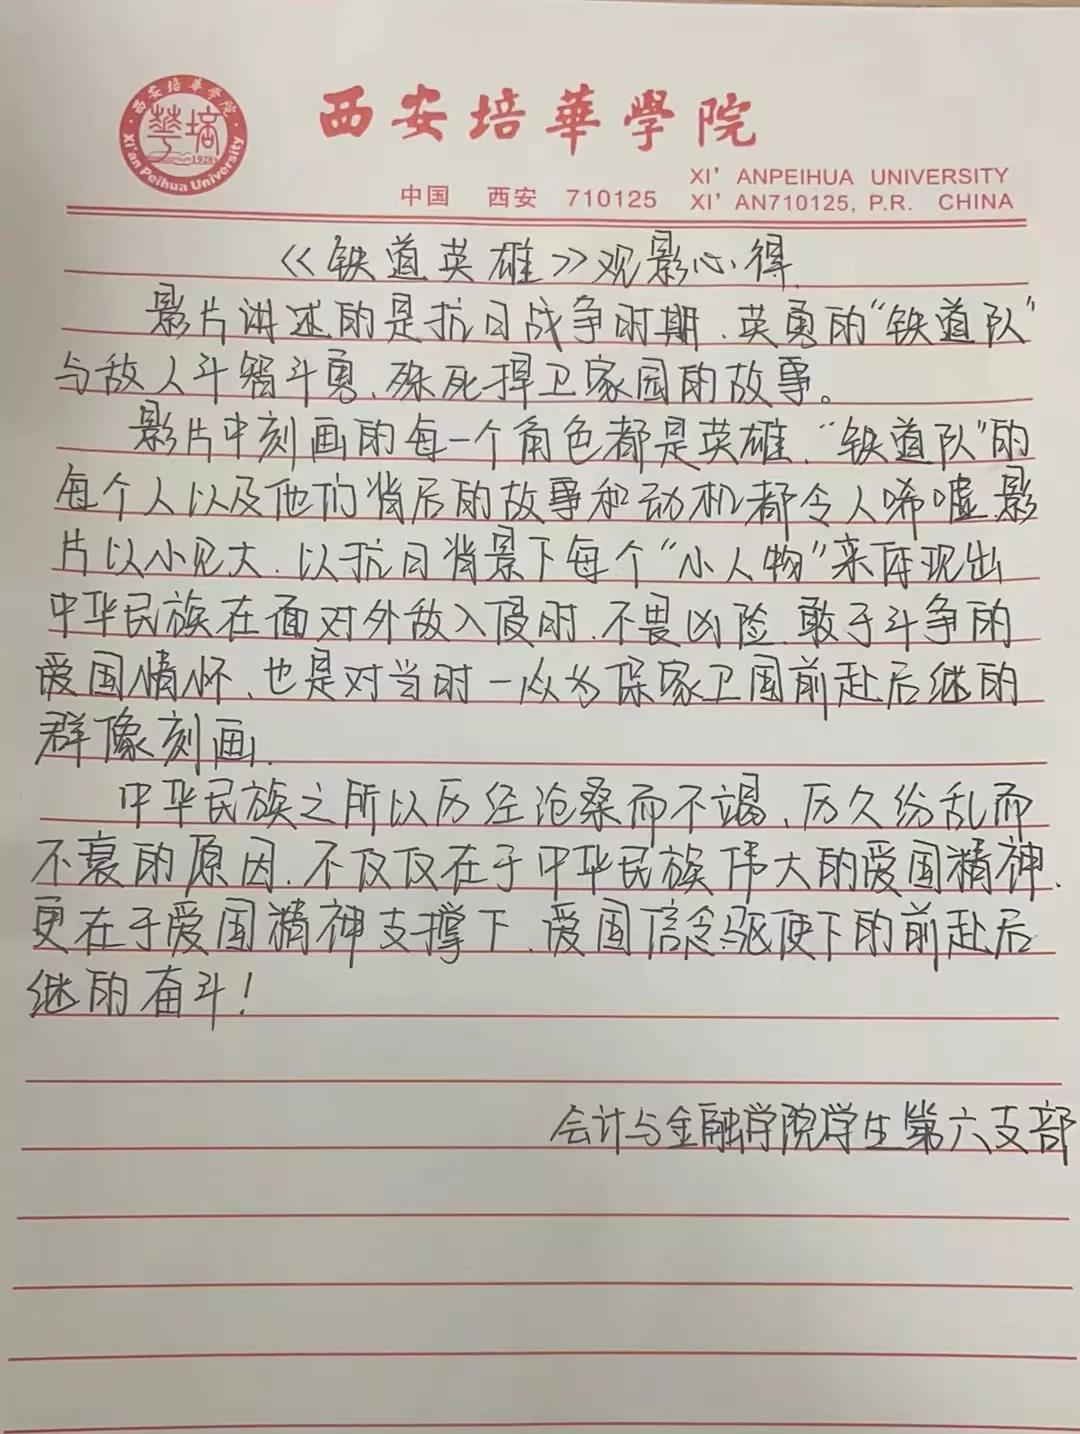 西安培華學院
Xi'an Peihua University
華培
1928
西安培華學院
XI' ANPEIHUA UNIVERSITY
中国 西安 710125 XI' AN710125, P.R. CHINA
《铁道英雄》观影心得
影片讲述的是抗日战争时期、英勇的“铁道队”
与敌人斗智斗勇、殊死捍卫家园的故事。
影片中刻画的每一个角色都是英雄、“铁道队”的
每个人以及他们背后的故事和动机都令人唏嘘、影
片以小见大、以抗日背景下每个“小人物”来体现出
中华民族在面对外敌入侵时、不畏凶险、敢于斗争的
爱国情怀、也是对当时一众为保家卫国前赴后继的
群像刻画.
中华民族之所以历经沧桑而不竭、历久纷乱而
不衰的原因、不仅仅在于中华民族伟大的爱国精神、
更在于爱国精神支撑下、爱国信念驱使下的前赴后
继的奋斗!
会计与金融学院学生第六支部